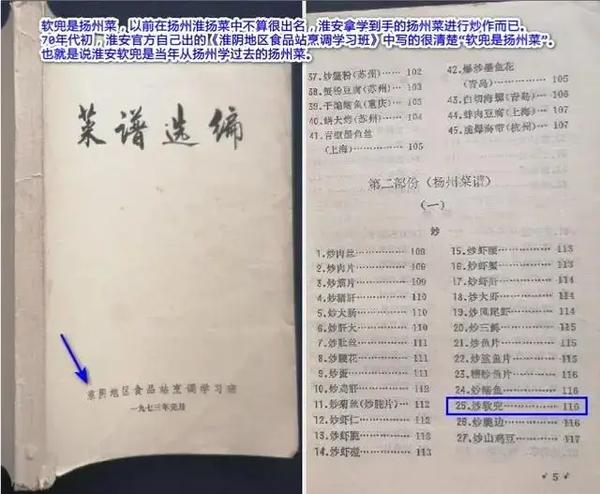 软兜是扬州菜，以前在扬州淮扬菜中不算很出名,,淮安拿学到手的扬州菜进行炒作而已.
70年代初，淮安官方自己出的《淮阴地区食品站烹调学习班》中写的很清楚“软兜是扬州菜”.
也就是说淮安软兜是当年从扬州学过去的扬州菜.
菜谱选编
淮阴地区食品站烹调学习班
一九七三年元月
37.炒蟹粉(苏州) 102
38.蟹粉豆腐(苏州) 103
39.干煸鳝鱼(重庆) 103
40.锅大烤(苏州) 104
41.青椒墨鱼丝
(上海) 105
42.爆炒墨鱼花
(青岛) 105
43.白切海螺(青岛) 106
44.蚌肉豆腐(上海) 107
45.虎爆海带(杭州) 107
第二部份(扬州菜谱)
(一)
炒
1.炒肉丝 109
2.炒肉片 109
3.炒 片 109
4.炒猪肝 110
5.炒大肠 110
6.炒肝大 110
7.炒肚丝 111
8.炒腰花 111
9.炒蛋 111
10.炒鸡 112
11.炒菊红(炒肫片) 112
12.炒虾仁 112
13.炒虾脆 113
14.炒虾 114
15.炒虾腰 113
16.炒虾蟹 114
17.炒虾 114
18.炒大虾 114
19.炒凤尾虾 115
20.炒三鲜 115
21.炒鱼片 115
22.炒 鱼片 115
23.糟炒鱼片 116
24.炒鳝鱼 116
25.炒软兜 116
26.炒脆边 116
27.炒山鸡豆 117
5